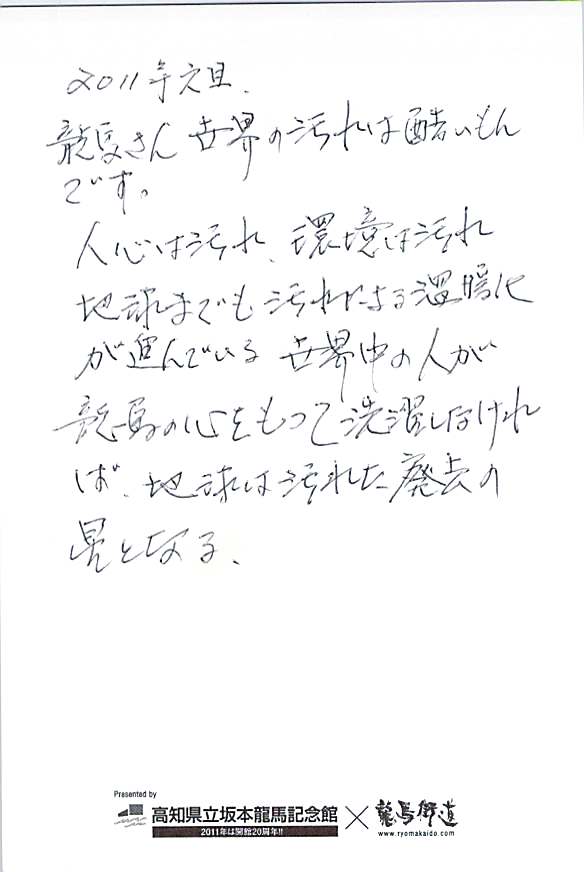 2011年元旦、
龍馬さん 世界の汚れは酷いもん
です。
人心は汚れ、環境は汚れ
地球までも汚れによる温暖化
が進んでいる 世界中の人が
龍馬の心をもって洗濯しなけれ
ば、地球は汚れた廃去の
星となる、
Presented by
高知県立坂本龍馬記念館 × 龍馬街道
2011年は開館20周年!!
www.ryomakaido.com